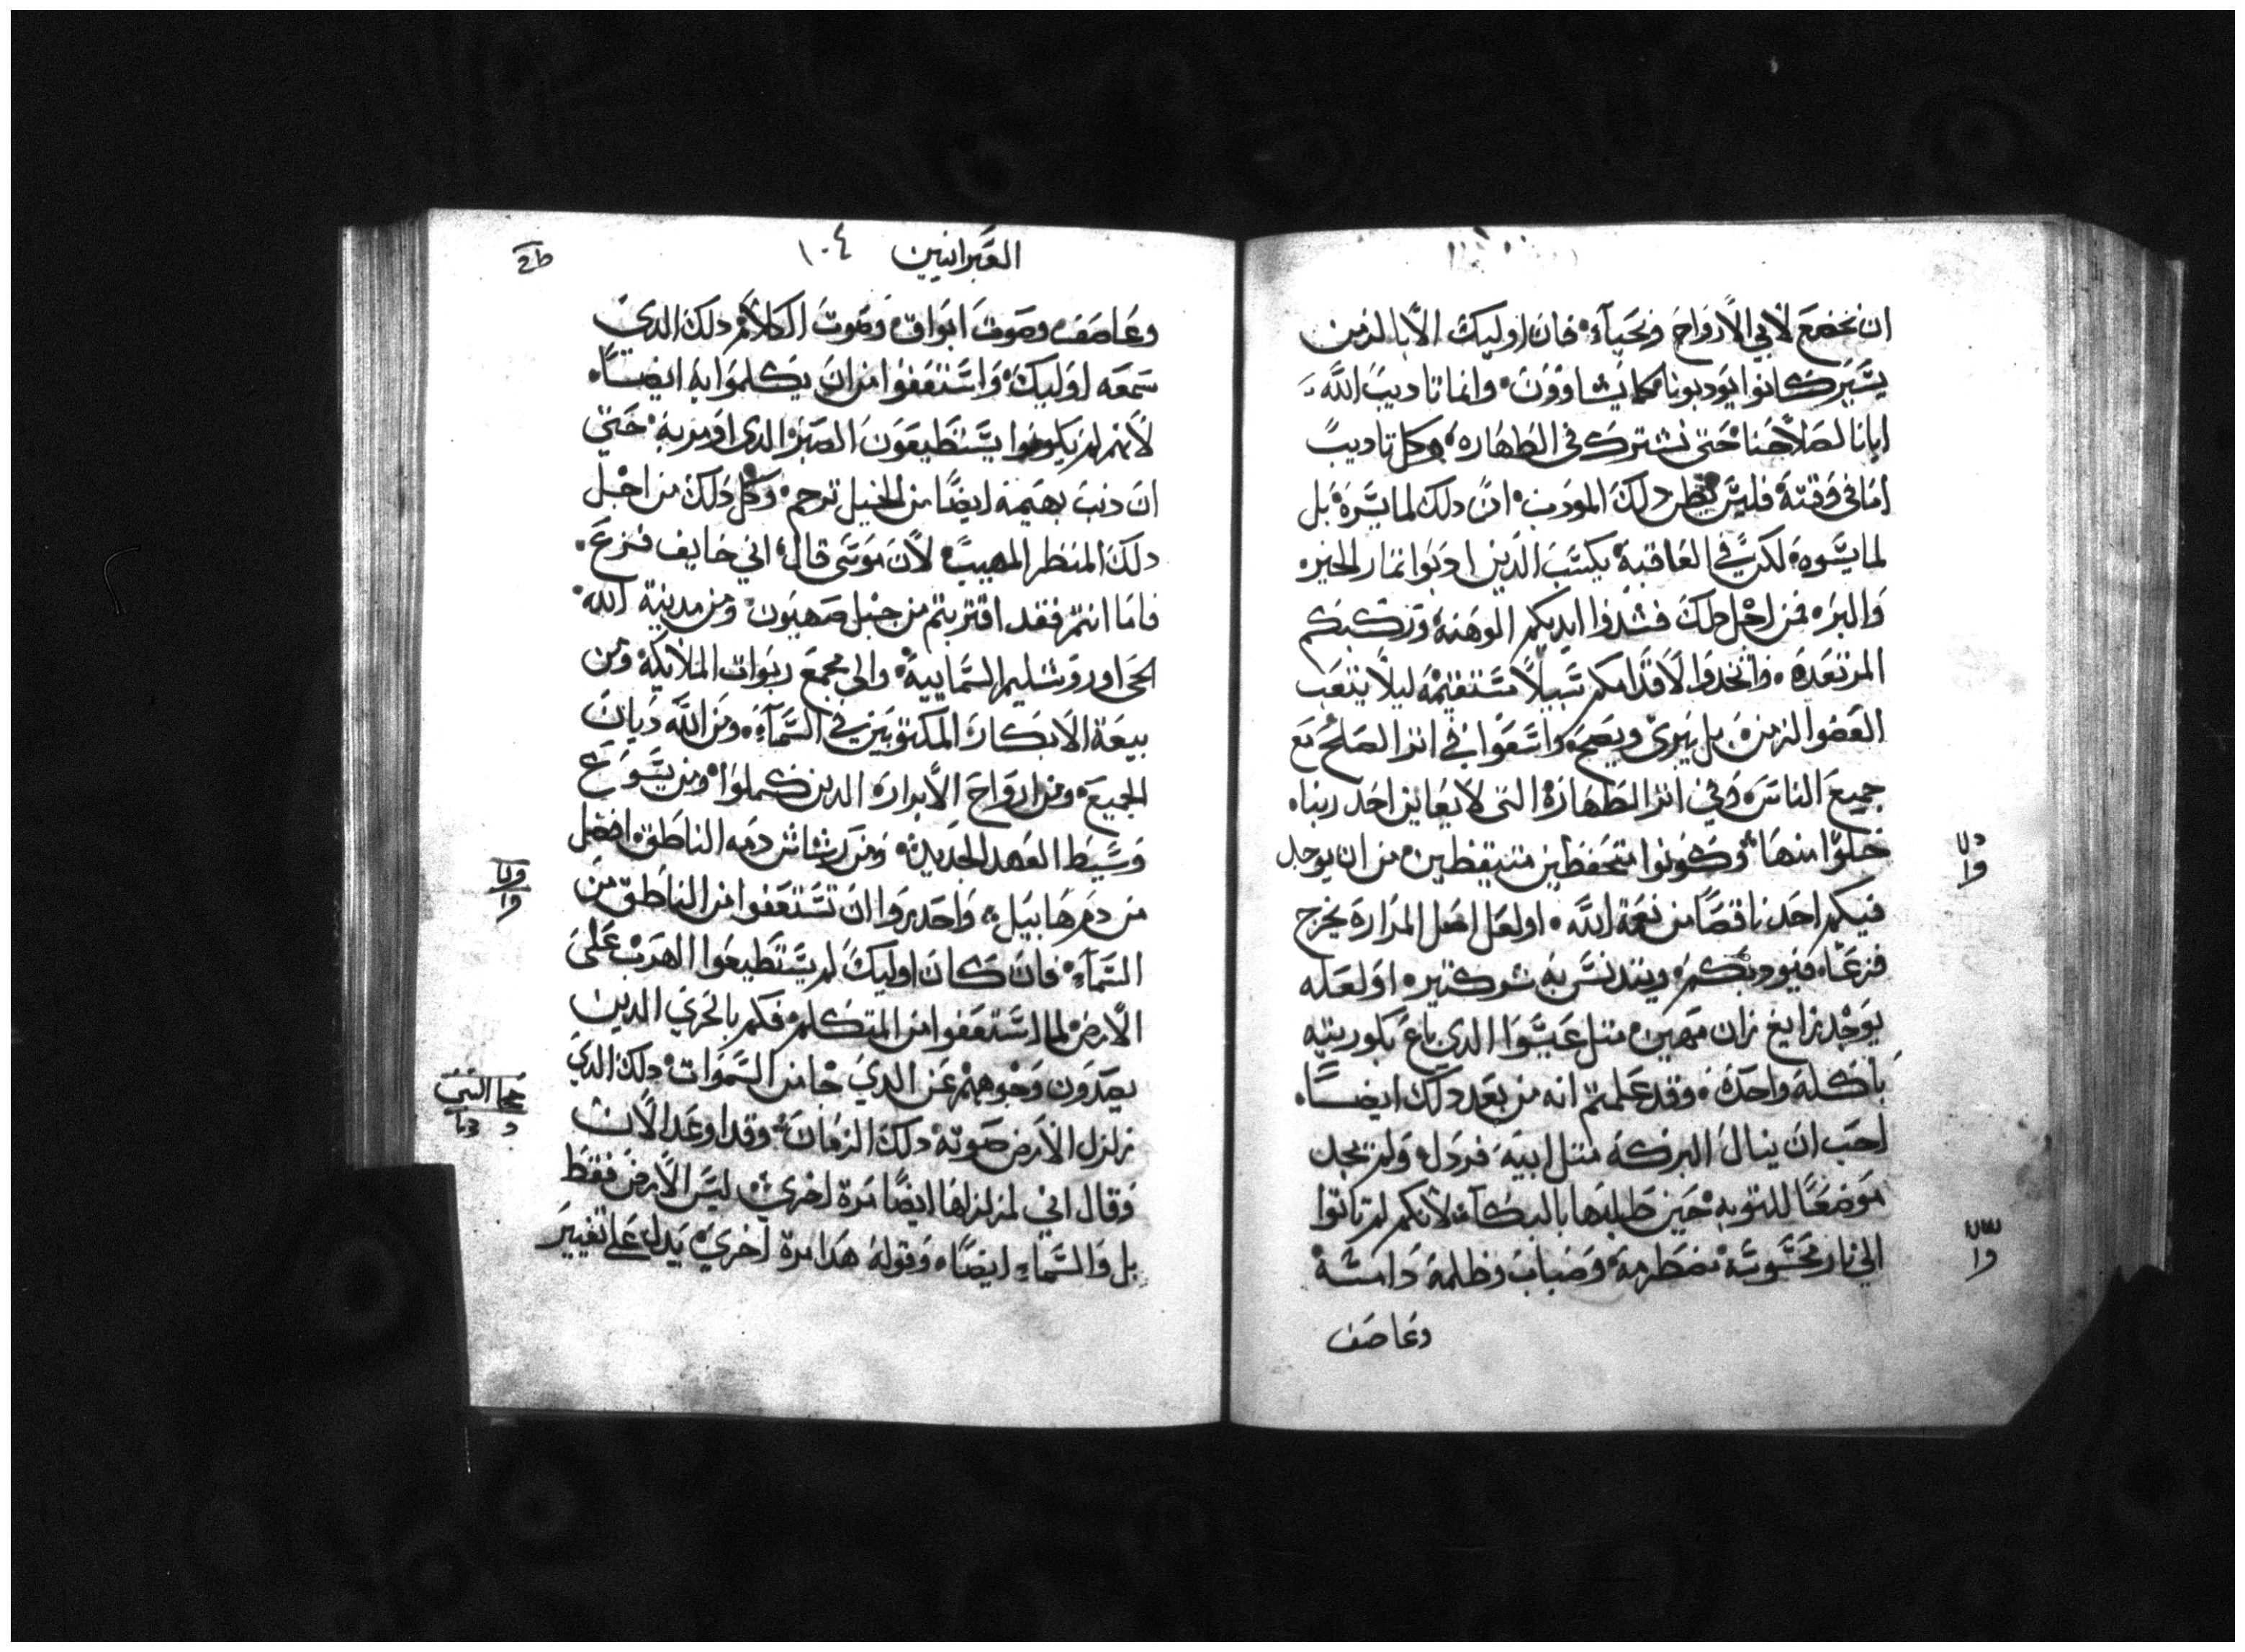 ان نخضع لابي الارواح ونحيا، فان اوليك الابا الزمن
يسير كانوا يودبونا كما يشاوون، وانما تاديب الله
ايانا لصلاحنا حتى نشترك في الطهاره، وكل تاديب
اما في وقته فليس يظن دلك المودب، ان دلك لما يسره بل
لما يسوه، لكن في العاقبة يكسب الدين ادبوا ثمار الخير
والبر، فمن اجل دلك فشدوا ايديكم الوهنة وركبكم
المرتعده، واتخدوا لاقدامكم سبيلا مستقيمة ليلا يتعب
العضو الزمن، بل يبرى ويصح، واسعوا في اثر الصلح مع
جميع الناس، وفي اثر الطهارة التي لا يعاين احد ربنا
خلوا منها، وكونوا متحفظين متيقظين من ان يوجد
فيكم احد ناقصا من نعمة الله، او لعل اصل المراره يخرج
فرعا، فيوديكم ويتدنس به بشر كثير، او لعله
يوجد زايغ زان مهين، مثل عيسوا الدي باع بكوريته
باكلة واحدة، وقد علمتم انه من بعد دلك ايضا
احب ان ينال البركة مثل ابيه فردل، ولم يجد
موضعا للتوبه، حين طلبها بالبكا، لانكم لم تاتوا
الى نار محسوسة مضطرمة، وضباب وظلمة دامسة
وعاصف
العبرانيين ١٠٤
وعاصف، وصوت ابواق، وصوت الكلام، دلك الدي
سمعه اوليك، واستعفوا من ان يكلموا به ايضا
لانهم لم يكونوا يستطيعون الصبر الدي اومر به، حتى
ان دنت بهيمة ايضا من الجبل ترجم، وكل دلك من اجل
دلك المنظر المهيب، لان موسى قال، اني خايف فزع
فاما انتم فقد اقتربتم من جبل صهيون، ومن مدينة الله
الحى اوروشليم السماييه، والى مجمع ربوات الملايكه، ومن
بيعة الابكار، المكتوبين في السماء، ومن الله ديان
الجميع، ومن ارواح الابرار، الدين كملوا، ومن يسوع
وسيط العهد الجديد، ومن رشاش دمه الناطق افضل
من دم هابيل، واحدروا ان تستعفوا من الناطق من
السماء، فان كان اوليك لم يستطيعوا الهرب على
الارض لما استعفوا من المتكلم، فكم بالحري الدين
يصدون وجوههم عن الدي جا من السموات، دلك الدي
زلزل الارض صوته دلك الزمان، وقد اوعد الان
وقال اني لمزلزلها ايضا مرة اخرى، ليس الارض فقط
بل والسماء ايضا، وقوله هدا مرة اخرى، يدل على تغيير